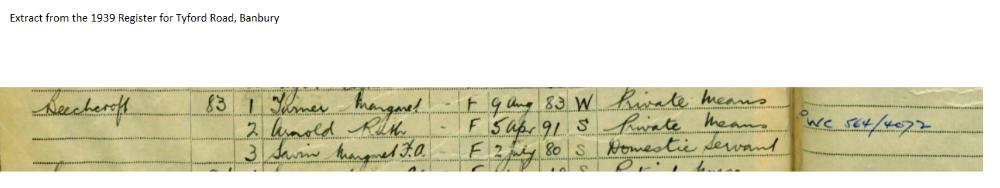 Extract from the 1939 Register for Tyford Road, Banbury
Beechcroft 83 1 Turner Margaret - F 9 Aug 83 W Private Means
2 Arnold Ruth - F 5 Apr 91 S Private Means WC 564/4072
3 Margaret F.A. F 2 July 80 S Domestic Servant